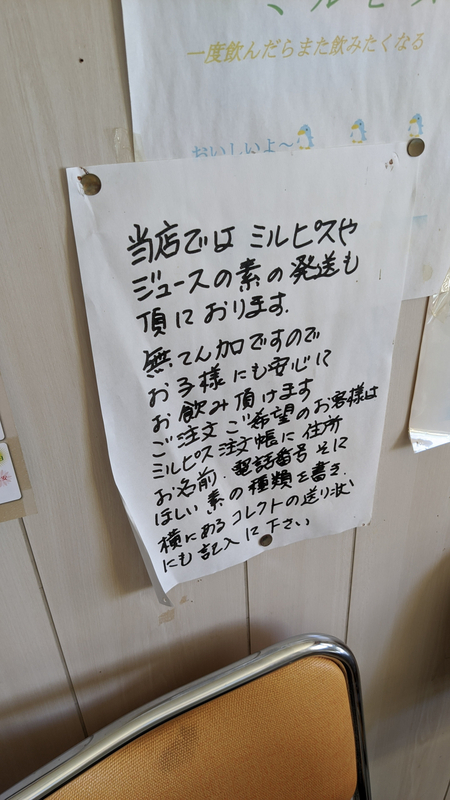 一度飲んだらまた飲みたくなる
おいしいよ〜
当店では ミルピスや
ジュースの素の発送も
頂におります.
無てん加ですので
お子様にも安心に
お飲み頂けます
ご注文ご希望のお客様は
ミルピス注文帳に住所
お名前.電話番号そに
ほしい素の種類を書き.
横にあるコレクトの送り状
にも記入に下さい